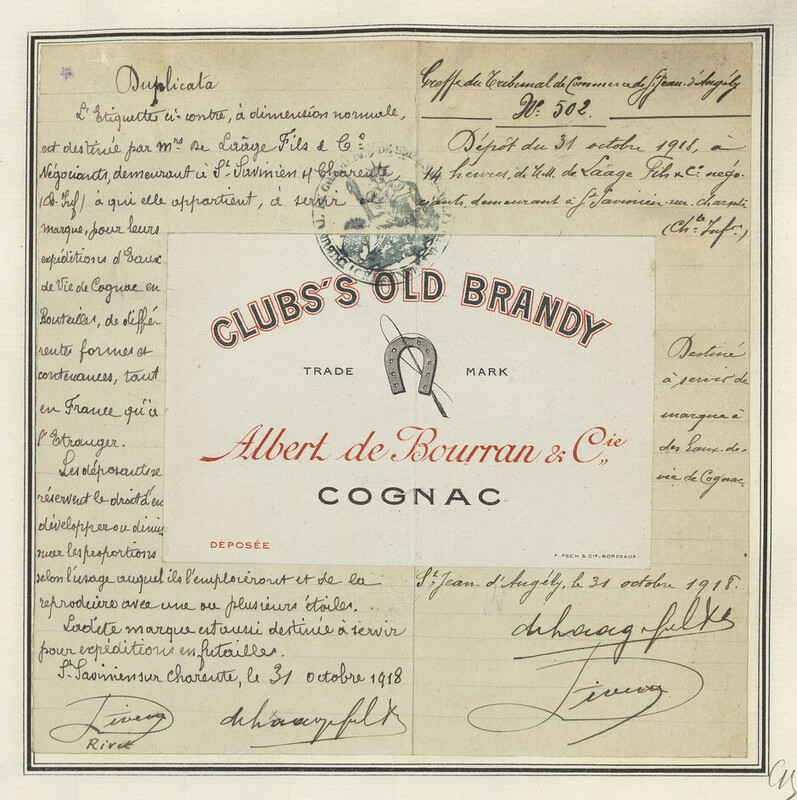 Duplicata
L'Etiquette ci-contre, à dimension normale,
est destinée par Mrs de Laâge Fils & Co
Négociants, demeurant à St Savinien s/ Charente,
(Ch. Inf) à qui elle appartient, à servir de
marque, pour leurs
expéditions d'Eaux
de Vie de Cognac en
Bouteilles, de diffé-
rentes formes et
contenances, tant
en France qu'à
l'Etranger.
Les déposants se
réservent le droit d'en
développer ou dimi
nuer les proportions
selon l'usage auquel ils l'emploieront et de la
reproduire avec une ou plusieurs étoiles.
Ladite marque est aussi destinée à servir
pour expéditions en futailles.
St Savinien sur Charente, le 31 octobre 1918
Rivet
Greffe du Tribunal de Commerce de St Jean-d'Angély
No 502.
Dépôt du 31 octobre 1918, à
14 heures, de M.M. de Laage Fils & Cie négo-
ciants, demeurant à St Savinien-sur-charente
(Ch.te Infre.)
CLUBS'S OLD BRANDY
TRADE MARK
Albert de Bourran & Cie
COGNAC
DÉPOSÉE
F. PECH & CIE. BORDEAUX
Destiné
à servir de
marque à
des Eaux-de-
vie de Cognac.
St Jean d'Angély, le 31 octobre 1918.